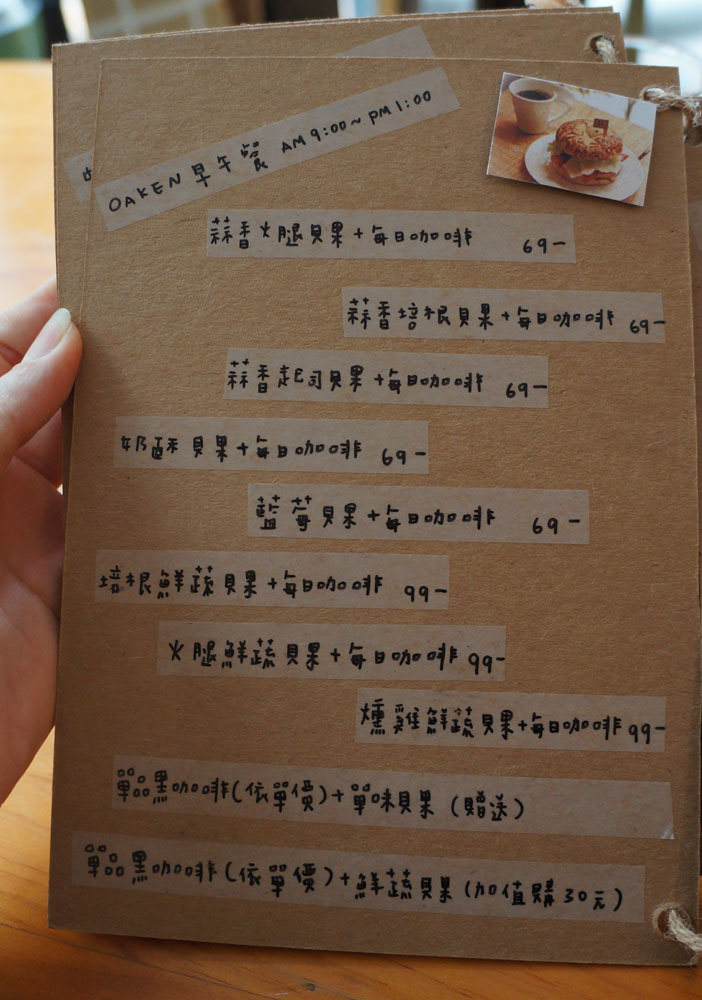 OAKEN 早午餐 AM 9:00~ PM 1:00
蒜香火腿貝果+每日咖啡 69-
蒜香培根貝果+每日咖啡 69-
蒜香起司貝果+每日咖啡 69-
奶酥貝果+每日咖啡 69-
藍莓貝果+每日咖啡 69-
培根鮮蔬貝果+每日咖啡 99-
火腿鮮蔬貝果+每日咖啡 99-
燻雞鮮蔬貝果+每日咖啡 99-
單品黑咖啡(依單價)+單味貝果 (贈送)
單品黑咖啡(依單價)+鮮蔬貝果(加值購30元)